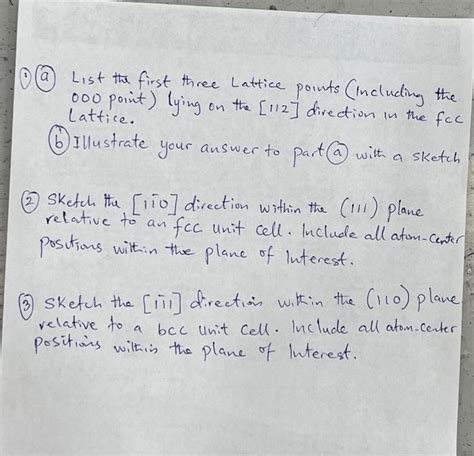 ① ⓐ List the first three Lattice points (Including the
000 point) lying on the [112] direction in the fcc
Lattice.
ⓑ Illustrate your answer to part ⓐ with a sketch
② Sketch the [1̄10] direction within the (111) plane
relative to an fcc unit cell. Include all atom-center
positions within the plane of Interest.
③ Sketch the [1̄11] direction within the (110) plane
relative to a bcc unit cell. Include all atom-center
positions within the plane of Interest.